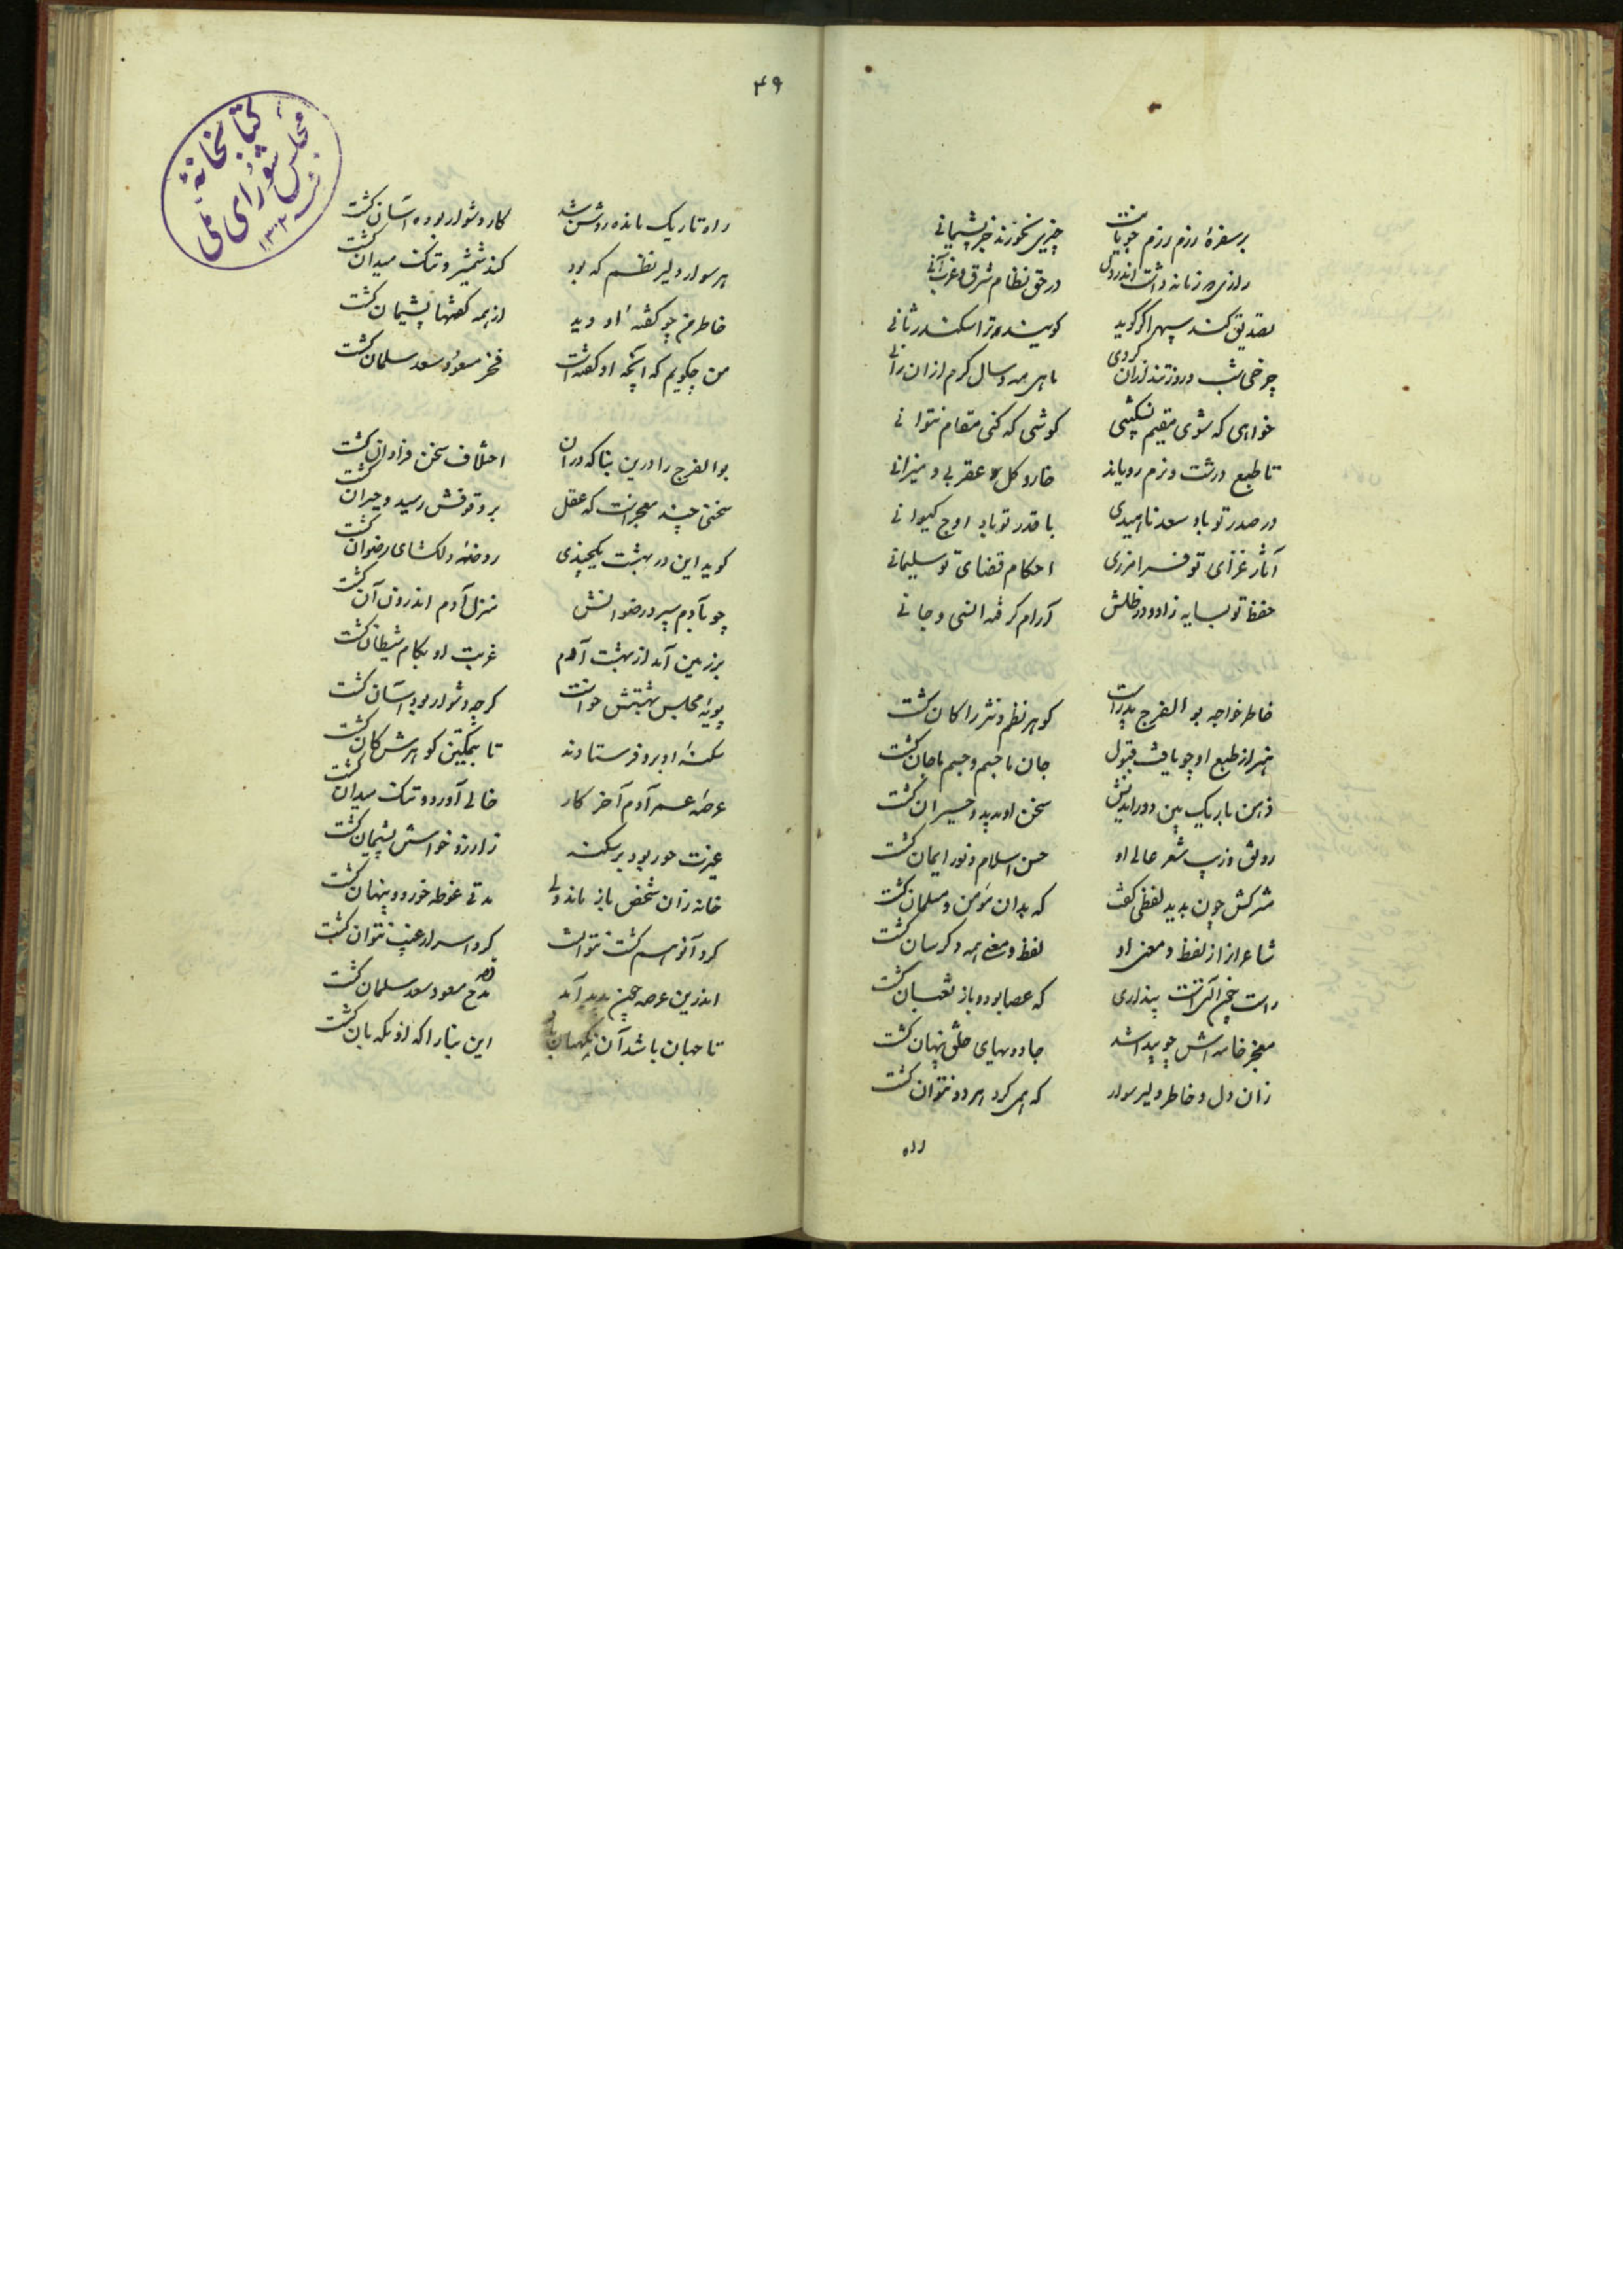 بر سفرهٔ رزم رزم جویانت چیزی نخورند جز پشیمانی
رازی که زمانه داشت اندر دل در حق نظام شرق و غرب آنی
تصدیق کند سپهر اگر گوید گویند ترا سکندر ثانی
چرخی شب و روز تند ازان گردی ماهی مه و سال گرم ازان رانی
خواهی که شوی مقیم نشکیبی کوشی که کنی مقام نتوانی
تا طبع درشت و نرم رویاند خار و گل عقربی و میزانی
در صدر تو باد سعد ناهیدی با قدر تو باد اوج کیوانی
آثار غزای تو فرامرزی احکام قضای تو سلیمانی
حفظ تو بسایه زاد و در ظلش آرام گرفته انسی و جانی
خاطر خواجه بو الفرج بدرست کوهر نظم و نثر را کان کشت
هنر از طبع او چو یافت قبول جان با جسم و جسم با جان کشت
ذهن باریک بین دور اندیش سخن او بدید و حیران کشت
رونق و زیب شعر عالی او حسن اسلام و نور ایمان کشت
مشرکش چون بدید لفظی گفت که بدان مؤمن و مسلمان کشت
شاعران از لفظ و معنی او لفظ و معنی همه دکرسان کشت
راست چیز آنست پنداری که عصا بود و باز ثعبان کشت
معجز خامه اش چو پیدا شد جادوییهای خلق پنهان کشت
زان دل و خاطر دلیر سوار که همی کرد هر دو نتوان کشت
راه
۴۹
راه تاریک مانده روشن شد کار دشوار بوده آسان کشت
هر سوار دلیر نظم که بود کند شمشیر و تنک میدان کشت
خاطر من چو گفتهٔ او دید از همه گفتها پشیمان کشت
من چگویم که آنچه او گفتست فخر مسعود سعد سلمان کشت
بوالفرج را درین بنا که در آن اختلاف سخن فراوان کشت
سخنی چند معجز است که عقل بر وقوفش رسید و حیران کشت
کوید این در بهشت یکچندی روضهٔ دلکشای رضوان کشت
چو بآدم سپرد رضوانش منزل آدم اندرون آن کشت
بر زمین آمد از بهشت آدم غربت او بکام شیطان کشت
بویهٔ مجلس بهشتش خواست کرچه دشوار بود آسان کشت
سکنهٔ او برو فرستادند تا بتمکین کوهرش کان کشت
عرصهٔ عمر آدم آخر کار خالی آورد و تنک میدان کشت
غیرت حور بود بر سکنه ز آرزو خواستن پشیمان کشت
خانه زان شخص باز ماند ولی مدتی غوطه خورد و پنهان کشت
گرد آن هم گشت نتوانست کرد اسرار غیب نتوان کشت
اندرین عرصه چمن پدید آمد قصر مدح مسعود سعد سلمان کشت
تا جهان باشد آن نگهبان باد این بنا را که او نکهبان کشت
کتابخانهٔ
مجلس شورای ملی
سنه ۱۳۰۲